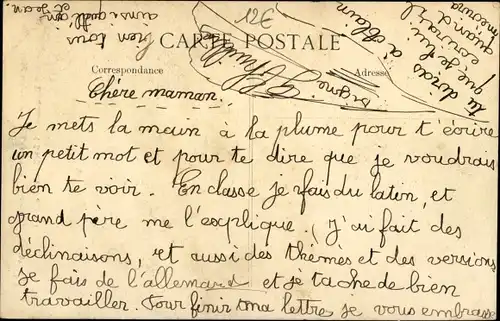 12€
CARTE POSTALE
Correspondance
Adresse
Chère maman.
Je mets la main à la plume pour t'écrire
un petit mot et pour te dire que je voudrais
bien te voir. En classe je fais du latin, et
grand père me l'explique. (J'ai fait des
déclinaisons, et aussi des thèmes et des versions
je fais de l'allemand et je tache de bien
travailler. Pour finir ma lettre je vous embrasse
bien tous
ainsi qu'
et Jean.
signé
tu diras à Alain
que je lui
écrirai
quand